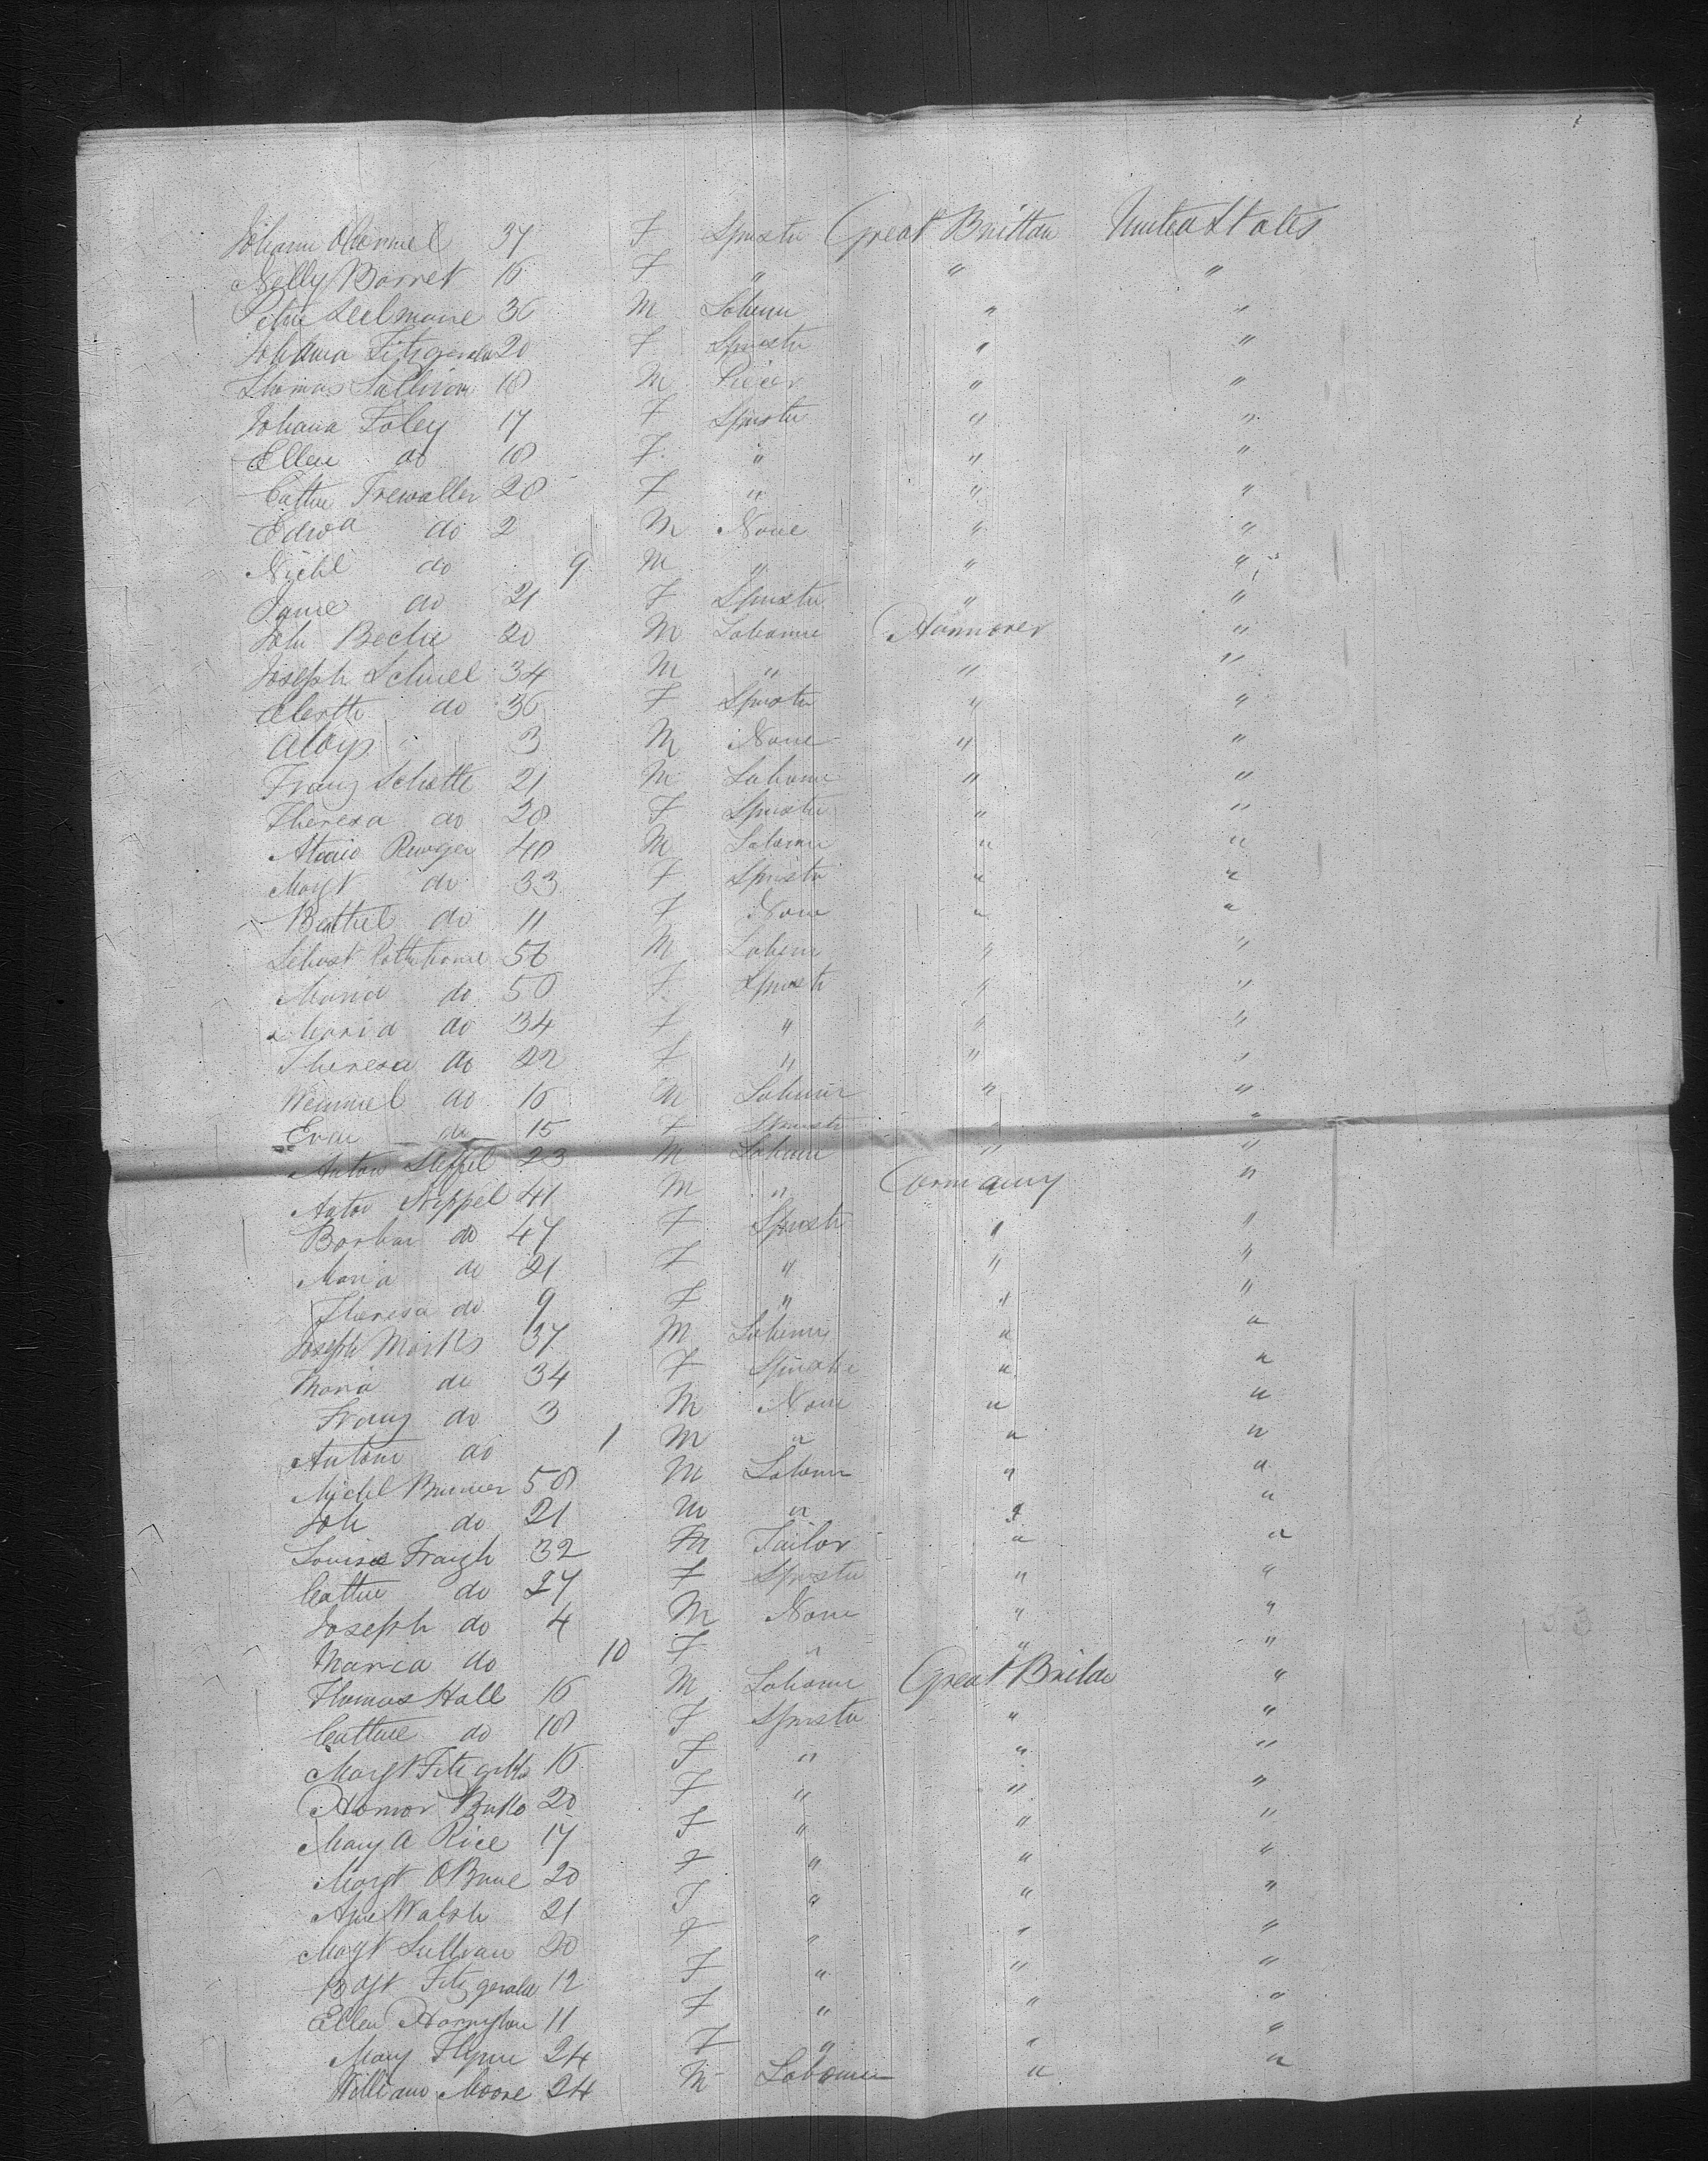 Johann OConnel 37 F Spinster Great Brittan United States
Nelly Barret 16 F " " "
Peter 36 M Laborer " "
Johanna Fitzgerald 20 F Spinster " "
Thomas Sullivan 18 M " "
Johana Foley 17 F Spinster " "
Ellen do 18 F " " "
Cathe Trewaller 28 F " " "
Edwd do 2 M None " "
Michl do 9 M " " "
Jane do 21 F Spinster " "
John 20 M Labourer Hannover "
Joseph 34 M " " "
do 36 F Spinster " "
Aloys 3 M None " "
Franz Schotte 21 M Labourer " "
Theresa do 28 F Spinster " "
40 M Labourer " "
Margt do 33 F Spinster " "
do 11 F None " "
56 M Laborer " "
Maria do 50 F Spinster " "
Maria do 34 F " " "
Theresa do 22 F " " "
do 16 M Laborer " "
do 15 F Spinster " "
Anton 23 M Laborer " "
Anton Nippel 41 M " Germany "
Barbar do 47 F Spinster " "
Maria do 21 F " " "
Theresa do 9 F " " "
Joseph Marks 37 M Laborer " "
Maria do 34 F Spinster " "
Franz do 3 M None " "
Antone do 1 M " " "
Michl Brunner 58 M Laborer " "
Joh do 21 M " " "
32 M Tailor " "
Cathe do 27 F Spinster " "
Joseph do 4 M None " "
Maria do 10 F " " "
Thomas Hall 16 M Laborer Great Britan "
Cathne do 18 F Spinster " "
Margt 16 F " " "
20 F " " "
Mary A Rice 17 F " " "
Margt OBrine 20 F " " "
Ane Walsh 21 F " " "
Margt Sullivan 20 F " " "
Fitzgerald 12 F " " "
Ellen Harrington 11 F " " "
Mary Flynn 24 F " " "
William Moore 24 M Labourer " "